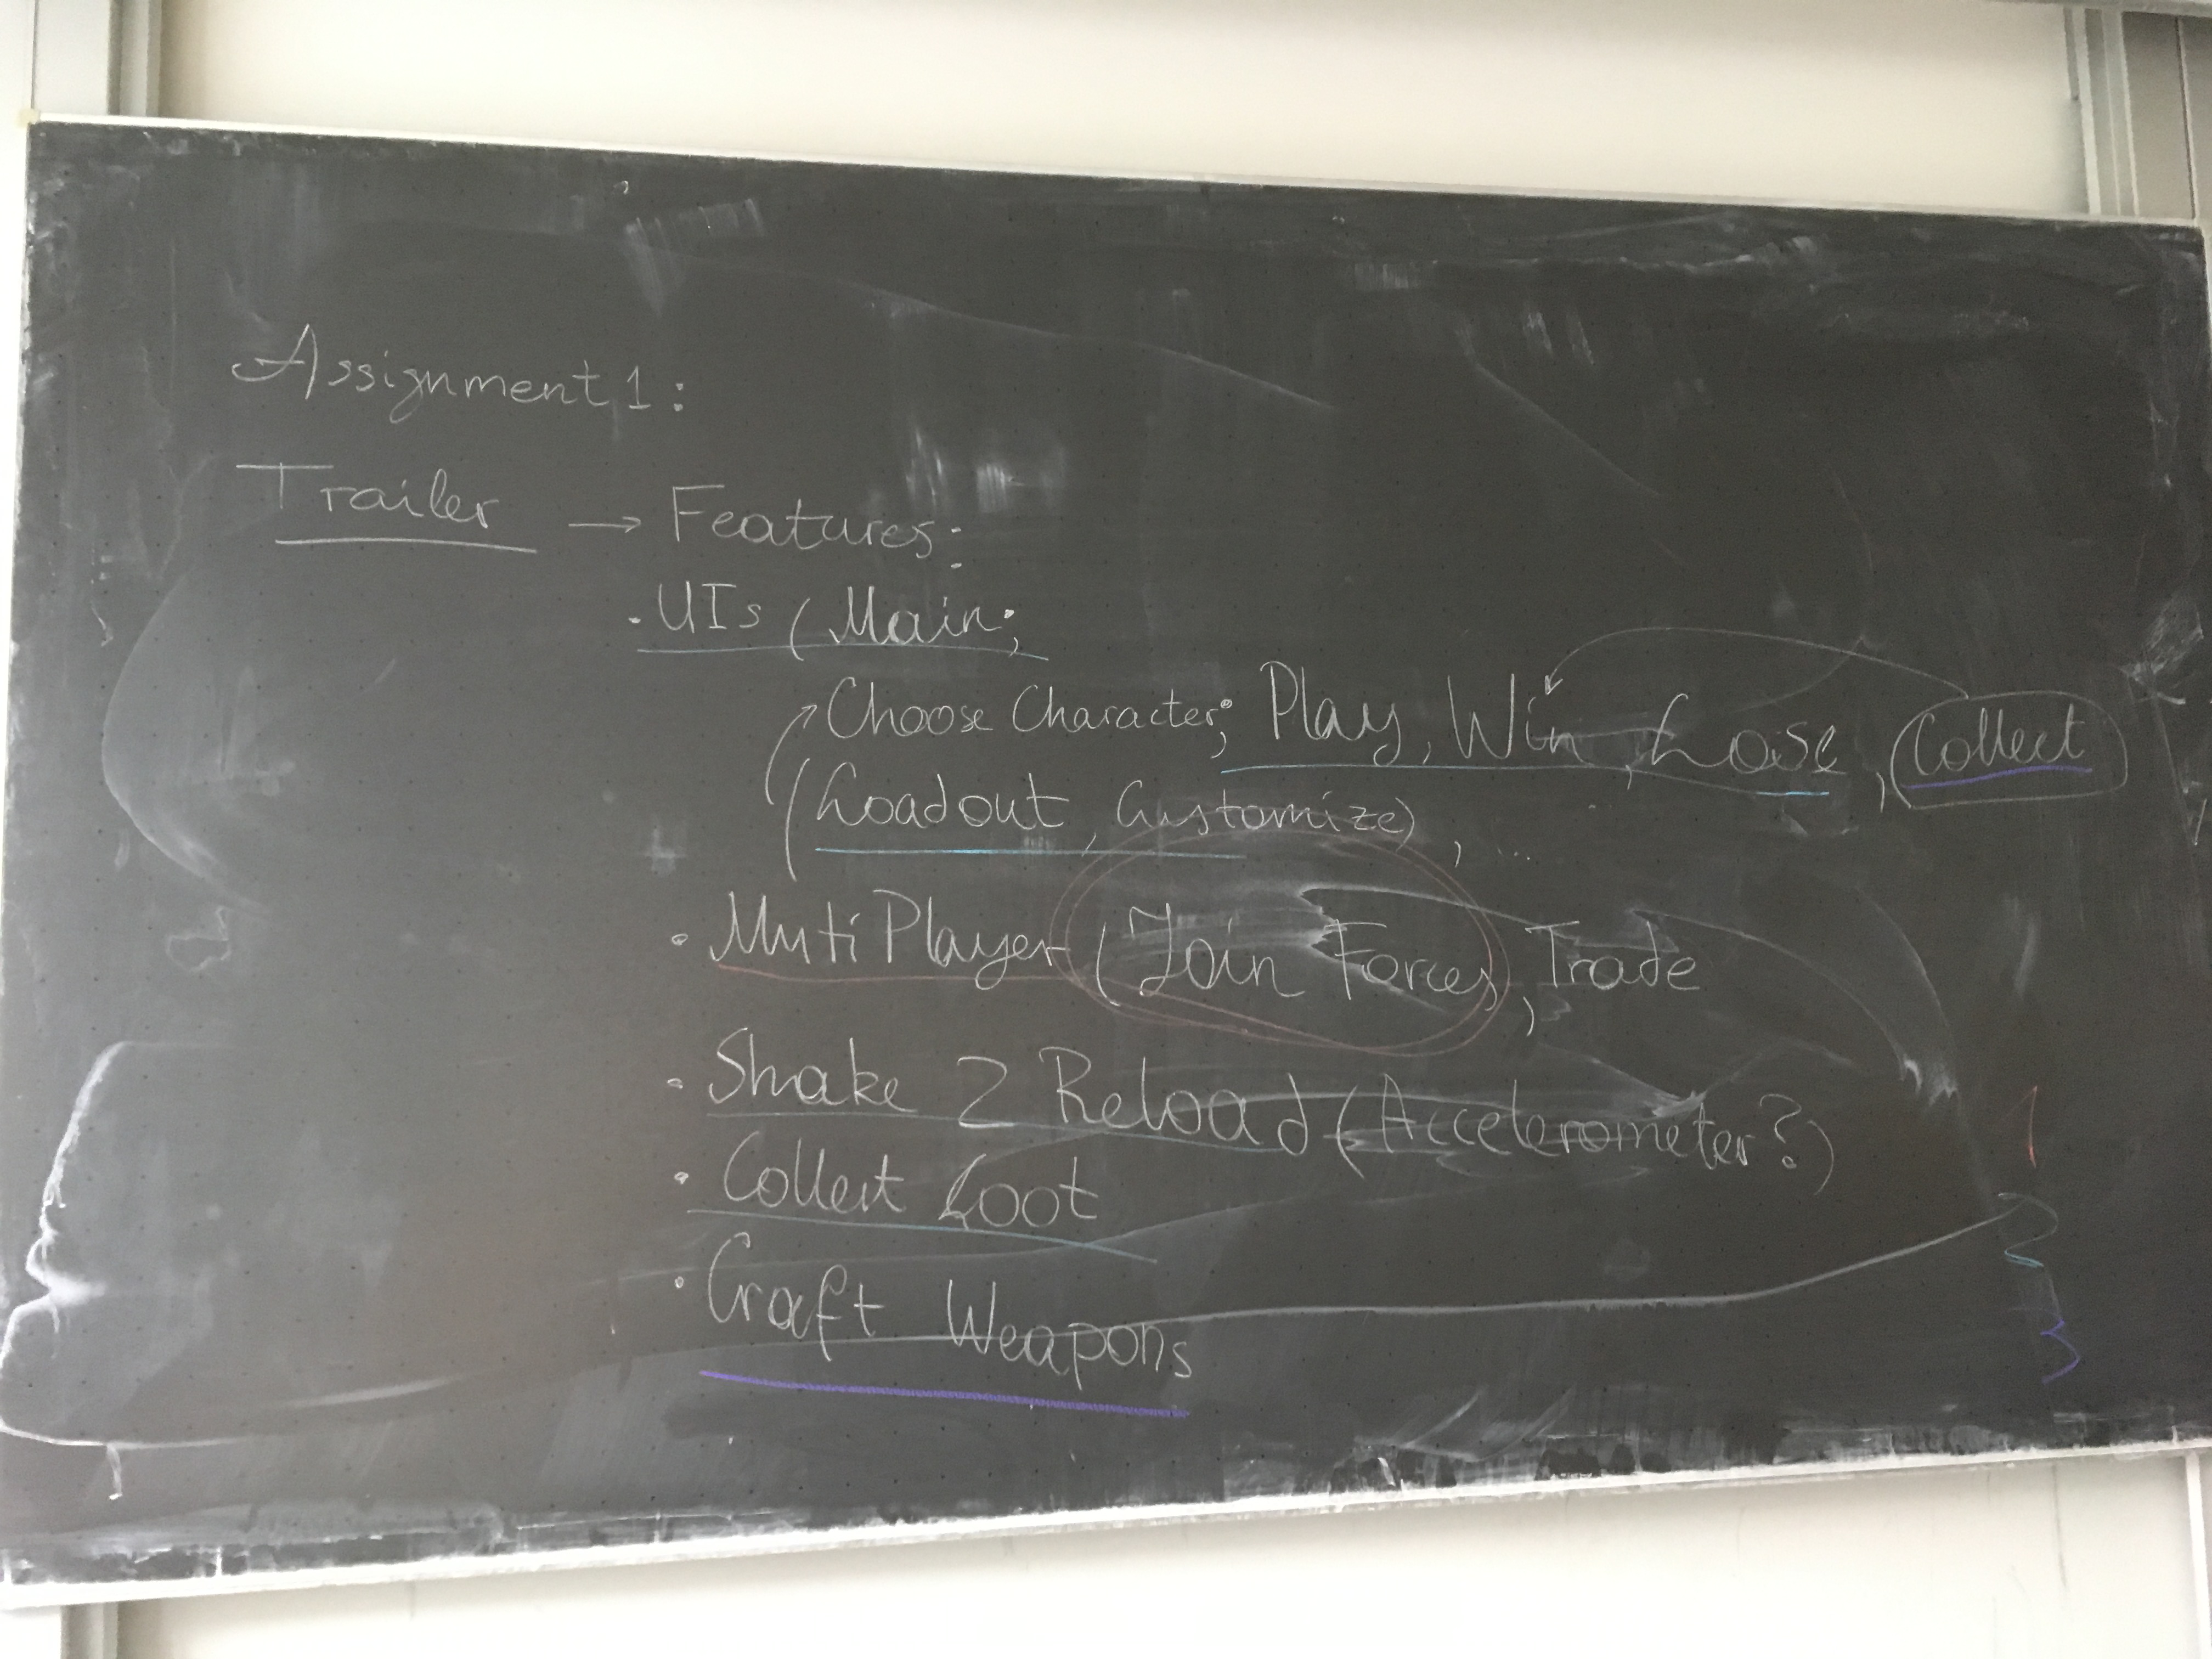 Assignment 1:
Trailer → Features:
· UIs (Main;
Choose Character; Play, Win, Lose, (Collect)
(Loadout, Customize), ...
· MutiPlayer (Join Forces, Trade
· Shake 2 Reload (Accelerometer?)
1
· Collect Loot
2
· Craft Weapons
3